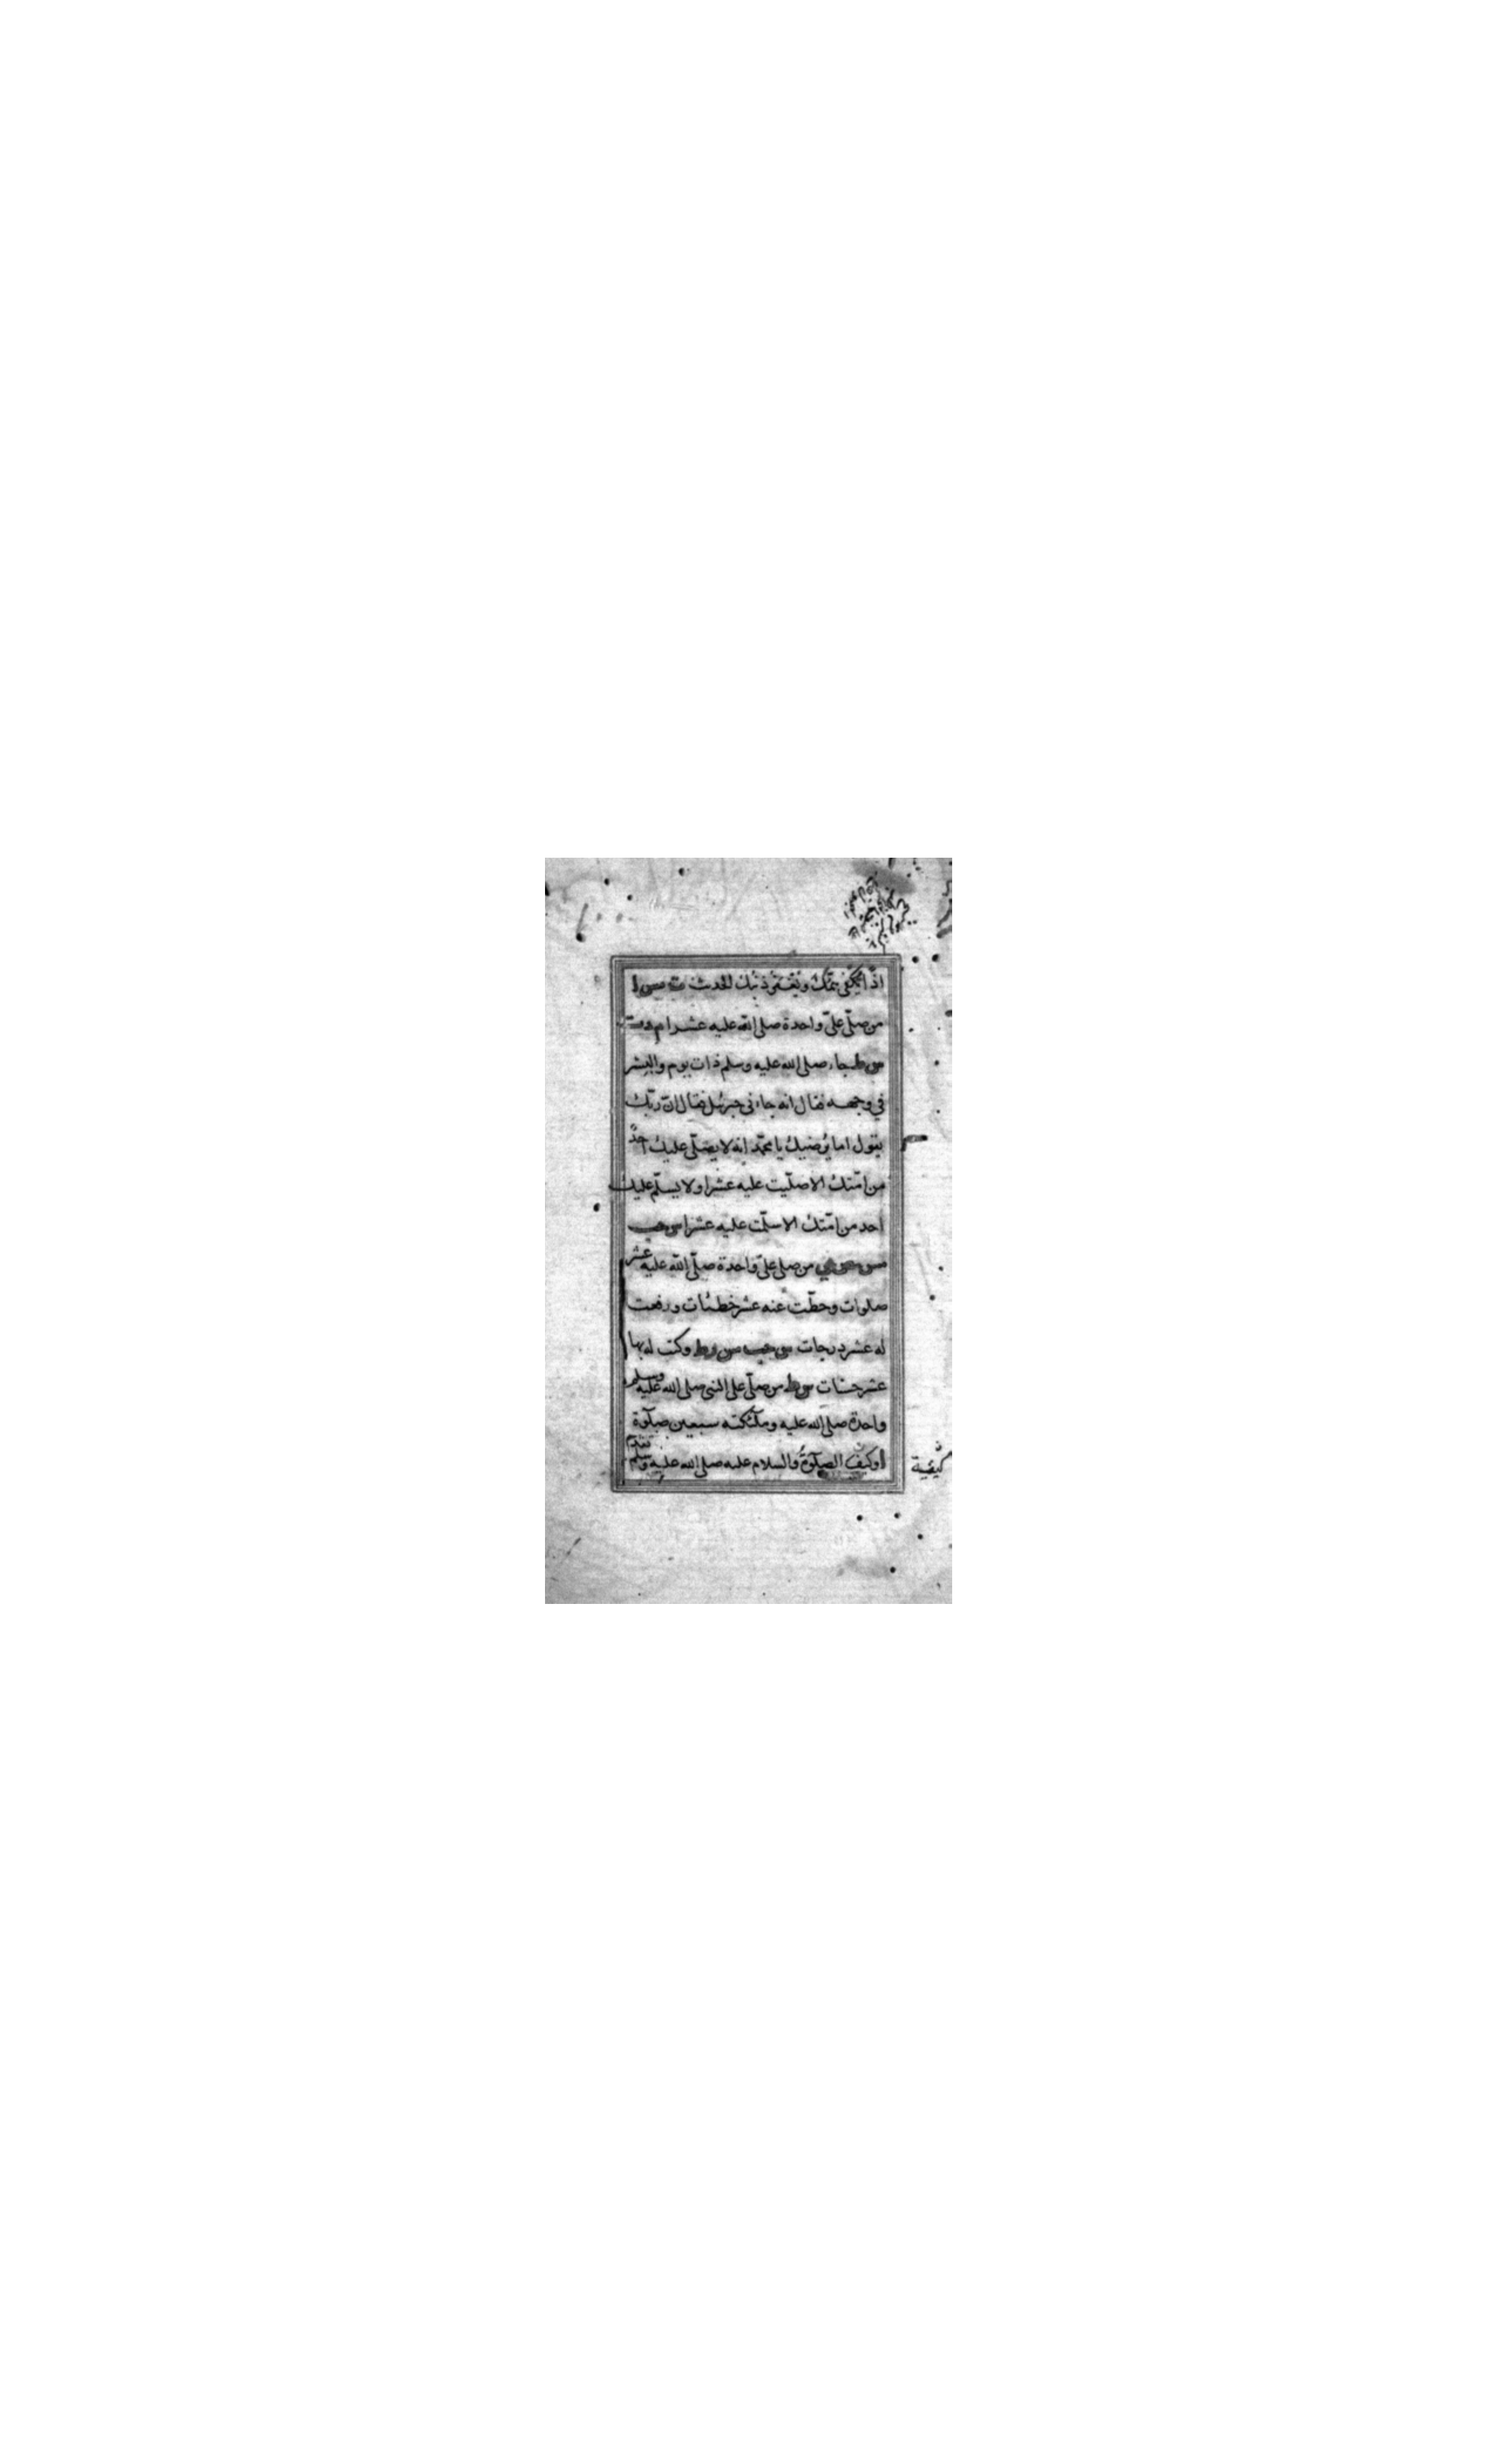 اذًا تكفى همّك ويُغفر ذنبك الحديث ت مس ا
من صلّى علىّ واحدة صلى الله عليه عشرا م د ت
س ط جاء صلى الله عليه وسلم ذات يوم والبشر
في وجهه فقال انه جاءنى جبرئيل فقال ان ربّك
يقول اما يُرضيك يا محمّد انه لا يصلّى عليك احدٌ
من امّتك الا صلّيت عليه عشرا ولا يسلّم عليك
احد من امّتك الا سلّمت عليه عشرا س حب
مس مص مي من صلى علىّ واحدة صلّى الله عليه عشر
صلوات وحطّت عنه عشر خطئات ورفعت
له عشر درجات س حب مس ر ط وكتب له بها
عشر حسنات س ط من صلّى على النبى صلى الله عليه وسلم
واحدة صلى الله عليه وملئكته سبعين صلوة
أ وكيف الصلوةُ والسلام عليه صلى الله عليه وسلم تقدم
كيفية